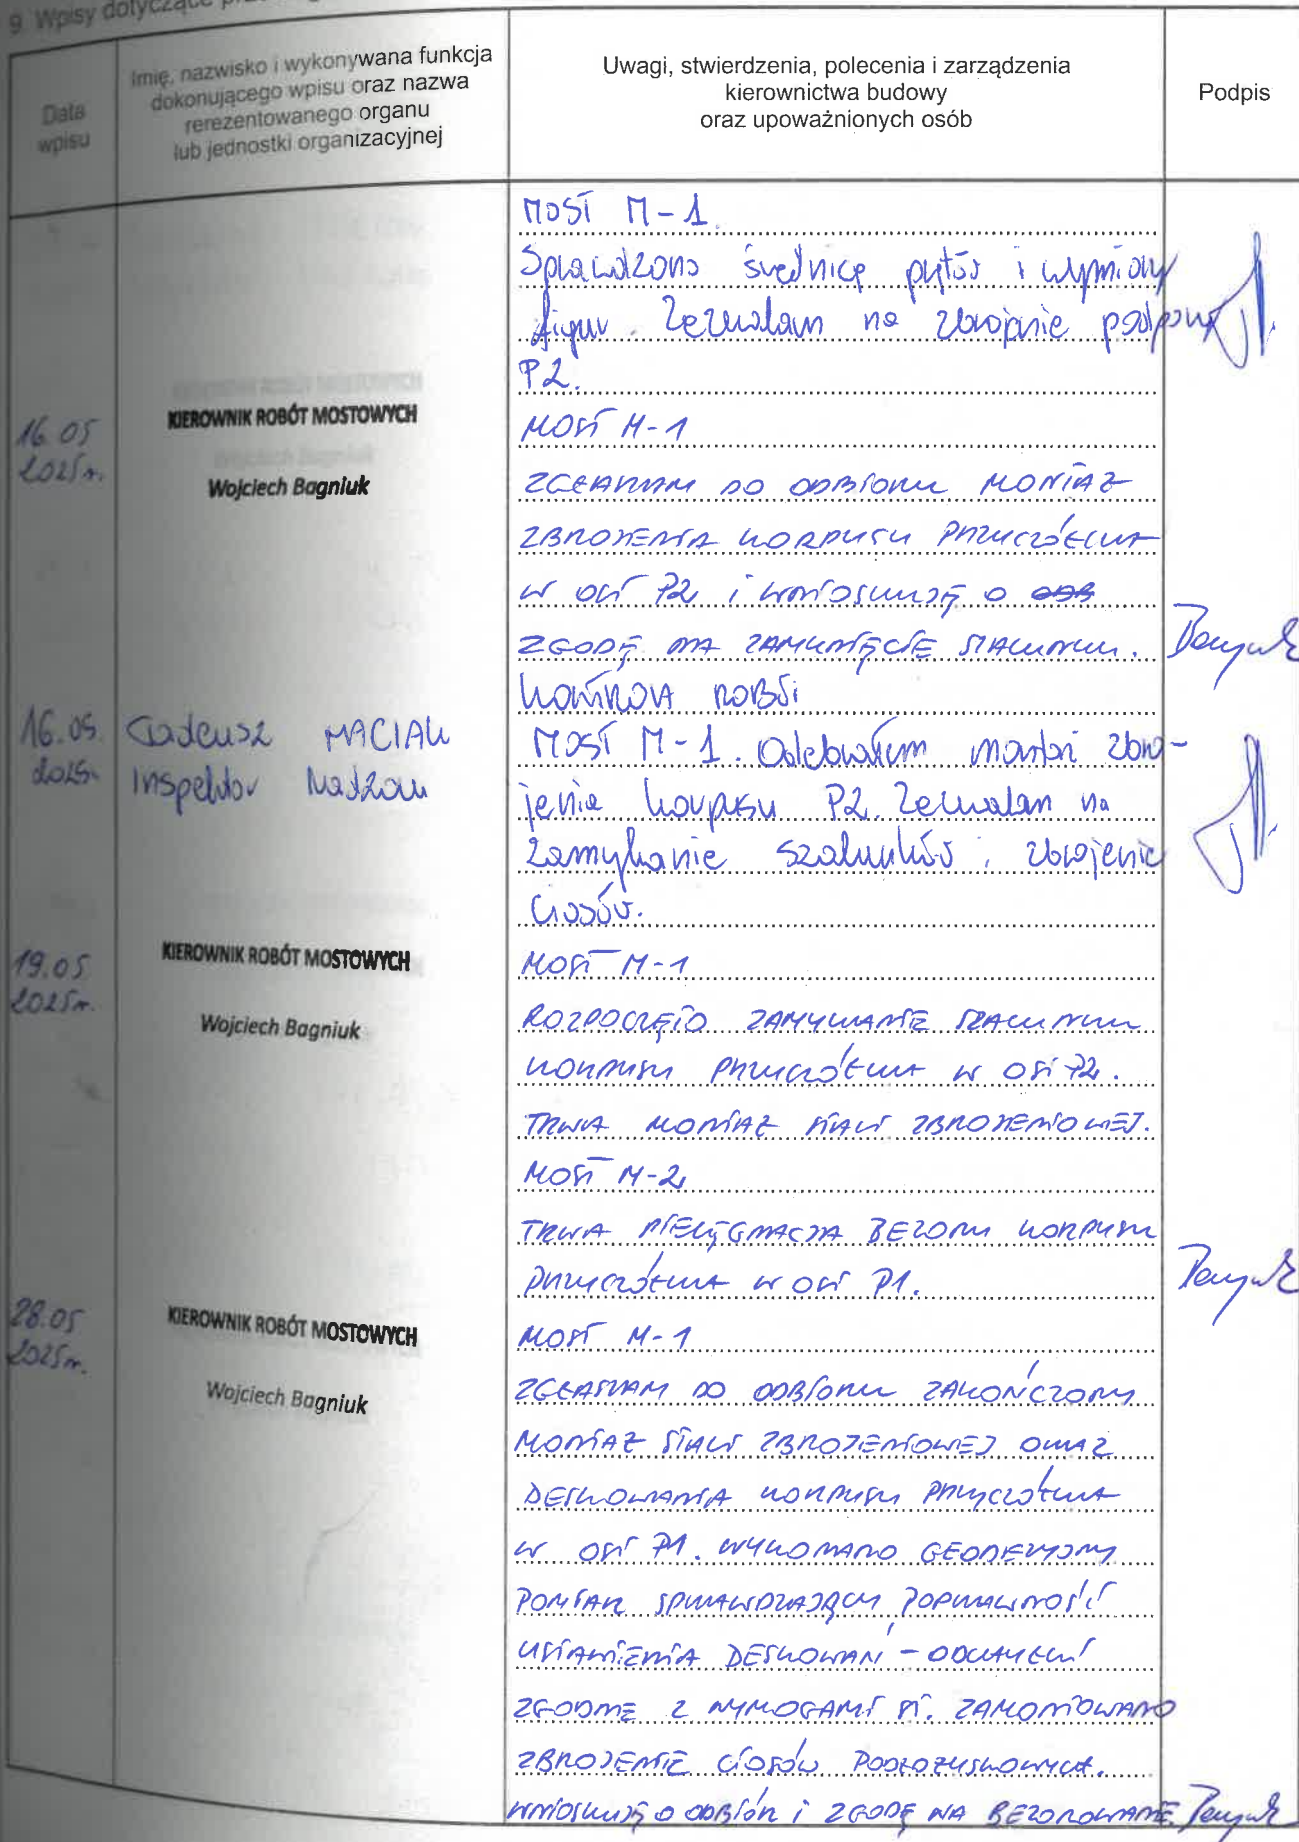 9. Wpisy dotyczące
Data wpisu
Imię, nazwisko i wykonywana funkcja
dokonującego wpisu oraz nazwa
rerezentowanego organu
lub jednostki organizacyjnej
Uwagi, stwierdzenia, polecenia i zarządzenia
kierownictwa budowy
oraz upoważnionych osób
Podpis
MOST M-1.
Sprawdzono średnicę prętów i wymiary
figur. Zezwalam na zbrojenie podpory
P2.
16.05
2025r.
KIEROWNIK ROBÓT MOSTOWYCH
Wojciech Bagniuk
MOST M-1
ZGŁASZAM DO ODBIORU MONTAŻ
ZBROJENIA KORPUSU PRZYCZÓŁKA
W OSI P2 i WNIOSKUJĘ O
ZGODĘ NA ZAMKNIĘCIE SZALUNKU.
16.05.
2025r
Tadeusz MACIAK
Inspektor Nadzoru
KONTROLA ROBÓT
MOST M-1. Odebrałem montaż zbro-
jenia korpusu P2. Zezwalam na
zamykanie szalunków, zbrojenie
ciosów.
19.05
2025r.
KIEROWNIK ROBÓT MOSTOWYCH
Wojciech Bagniuk
MOST M-1
ROZPOCZĘTO ZAMYKANIE SZALUNKU
KORPUSU PRZYCZÓŁKA W OSI P2.
TRWA MONTAŻ STALI ZBROJENIOWEJ.
MOST M-2
TRWA PIELĘGNACJA BETONU KORPUSU
PRZYCZÓŁKA W OSI P1.
28.05
2025r.
KIEROWNIK ROBÓT MOSTOWYCH
Wojciech Bagniuk
MOST M-1
ZGŁASZAM DO ODBIORU ZAKOŃCZONY
MONTAŻ STALI ZBROJENIOWEJ ORAZ
DESKOWANIA KORPUSU PRZYCZÓŁKA
W OSI P1. WYKONANO GEODEZYJNY
POMIAR SPRAWDZAJĄCY POPRAWNOŚĆ
USTAWIENIA DESKOWAŃ - ODCHYŁKI
ZGODNE Z WYMOGAMI ST. ZAMONTOWANO
ZBROJENIE CIOSÓW PODŁOŻYSKOWYCH.
WNIOSKUJĘ O ODBIÓR i ZGODĘ NA BETONOWANIE.